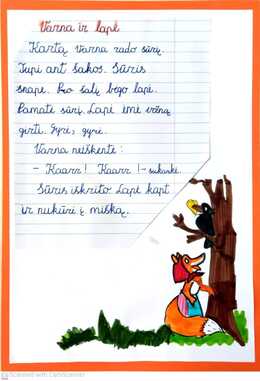 Varna ir lapė
Kartą varna rado sūrį.
Tupi ant šakos. Sūris
snape. Pro šalį bėgo lapė.
Pamatė sūrį. Lapė ėmė varną
girti. Gyrė, gyrė.
Varna neiškentė:
- Kaarr! Kaarr! - sukarkė.
Sūris iškrito. Lapė kapt
ir nukūrė į mišką.
Scanned with CamScanner